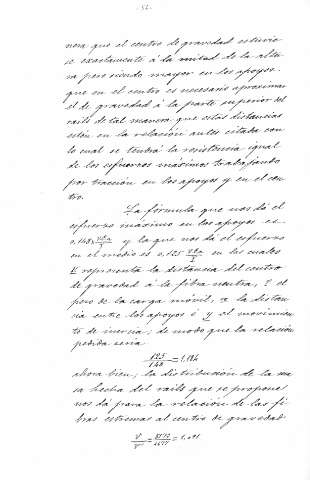 52.
nera que el centro de gravedad estuvie
se exactamente á la mitad de la altu
ra pero siendo mayor en los apoyos
que en el centro es necesario aproximar
el de gravedad á la parte superior del
rails de tal manera que estas distancias
estén en la relación antes citada con
lo cual se tendrá la resistencia igual
de los esfuerzos máximos trabajando
por tracción en los apoyos y en el cen
tro.
La fórmula que nos dá el
esfuerzo máximo en los apoyos es
y la que nos dá el esfuerzo
en el medio es en las cuales
V representa la distancia del centro
de gravedad á la fibra neutra, P el
peso de la carga móvil, a la distan
cia entre los apoyos é Y el movimien
to de inercia; de modo que la relación
pedida sería
ahora bien; la distribución de la ma
sa hecha del rails que se propone
nos dá para la relación de las fi
bras estremas al centro de gravedad